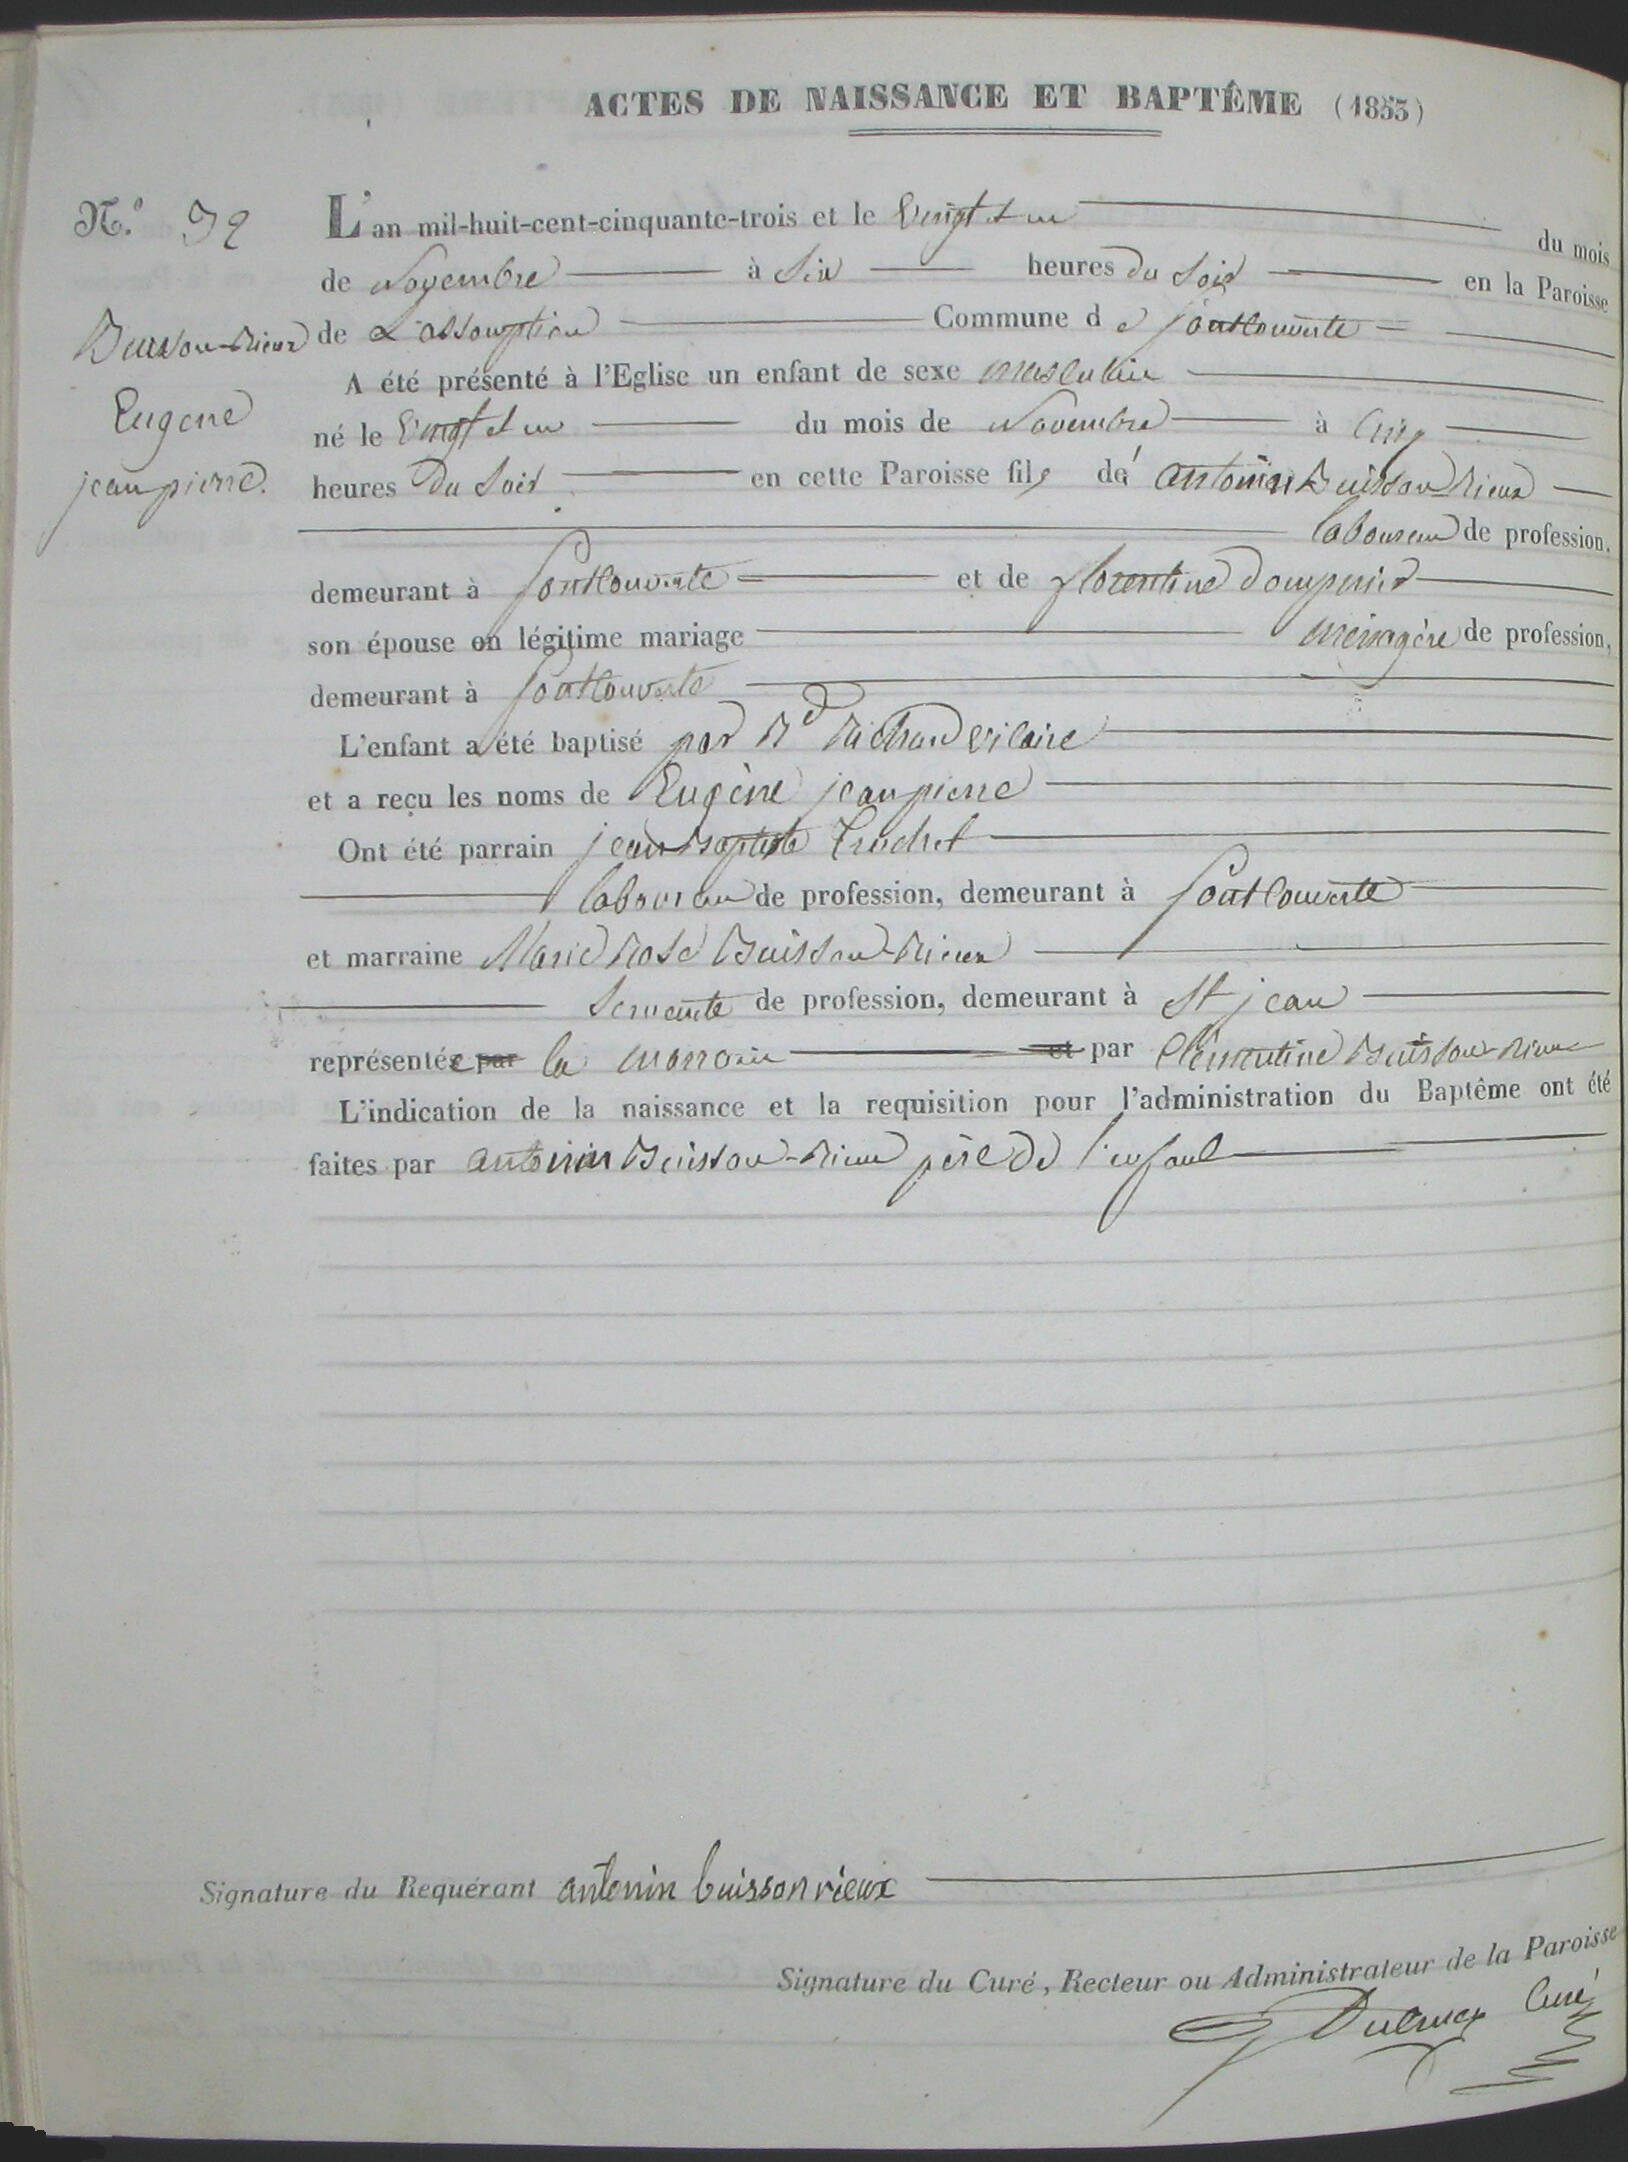 ACTES DE NAISSANCE ET BAPTÊME (1853)
N.º 32
L'an mil-huit-cent-cinquante-trois et le vingt et un du mois
de Novembre à Six heures du Soir en la Paroisse
Buisson-Rieux
de L'assomption Commune de fontcouverte
A été présenté à l'Eglise un enfant de sexe masculin
Eugene
né le vingt et un du mois de Novembre à cinq
jeanpierre.
heures du Soir en cette Paroisse fils de antonin Buisson Rieux
laboureur de profession,
demeurant à fontcouverte et de florentine
son épouse en légitime mariage ménagère de profession,
demeurant à fontcouverte
L'enfant a été baptisé par Rd Richard vicaire
et a reçu les noms de Eugène jeanpierre
Ont été parrain jean Baptiste Truchet
laboureur de profession, demeurant à fontcouverte
et marraine Marie Rose Buisson-Rieux
Servante de profession, demeurant à St jean
représentée par la marraine et par Clémentine Buisson-Rieux
L'indication de la naissance et la requisition pour l'administration du Baptême ont été
faites par antonin Buisson-Rieux père de l'enfant
Signature du Requérant antonin buisson rieux
Signature du Curé, Recteur ou Administrateur de la Paroisse
Curé